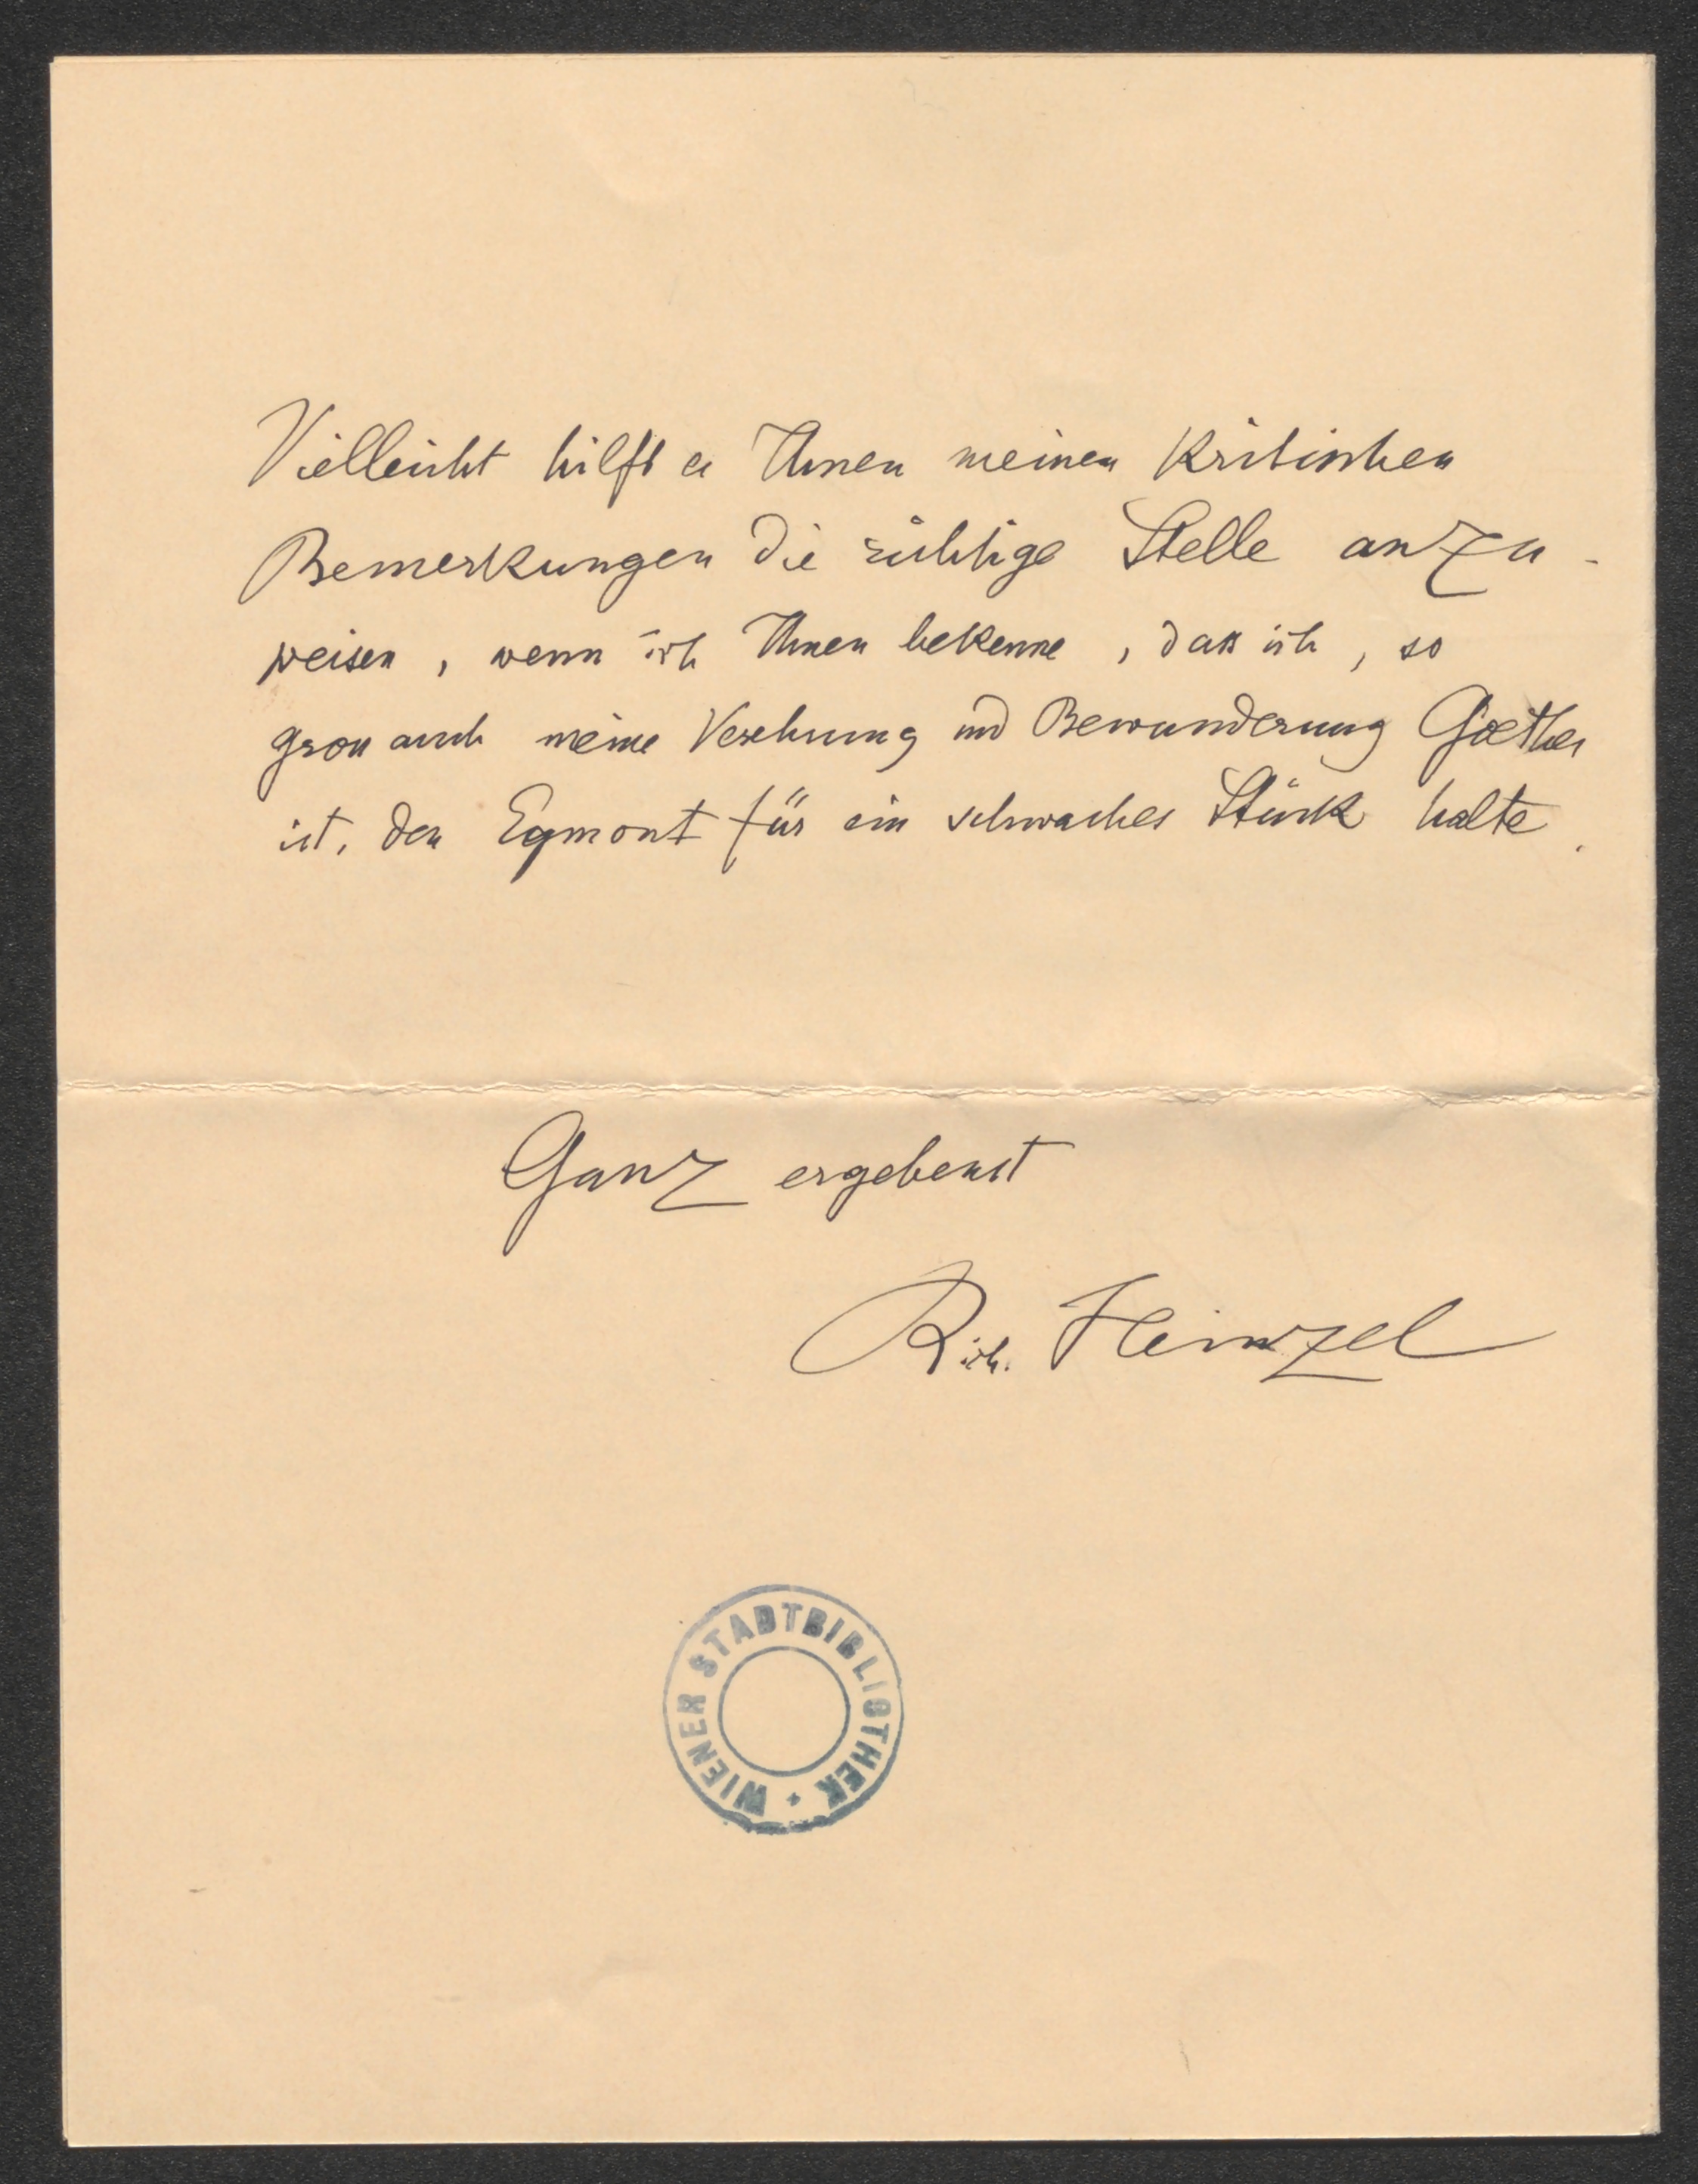 Vielleicht hilft es Ihnen meinen kritischen
Bemerkungen die richtige Stelle anzu-
weisen, wenn ich Ihnen bekenne, dass ich, so
gross auch meine Verehrung und Bewunderung Goethes
ist, den Egmont für ein schwaches Stück halte.
Ganz ergebenst
Rich. Heinzel
WIENER STADTBIBLIOTHEK